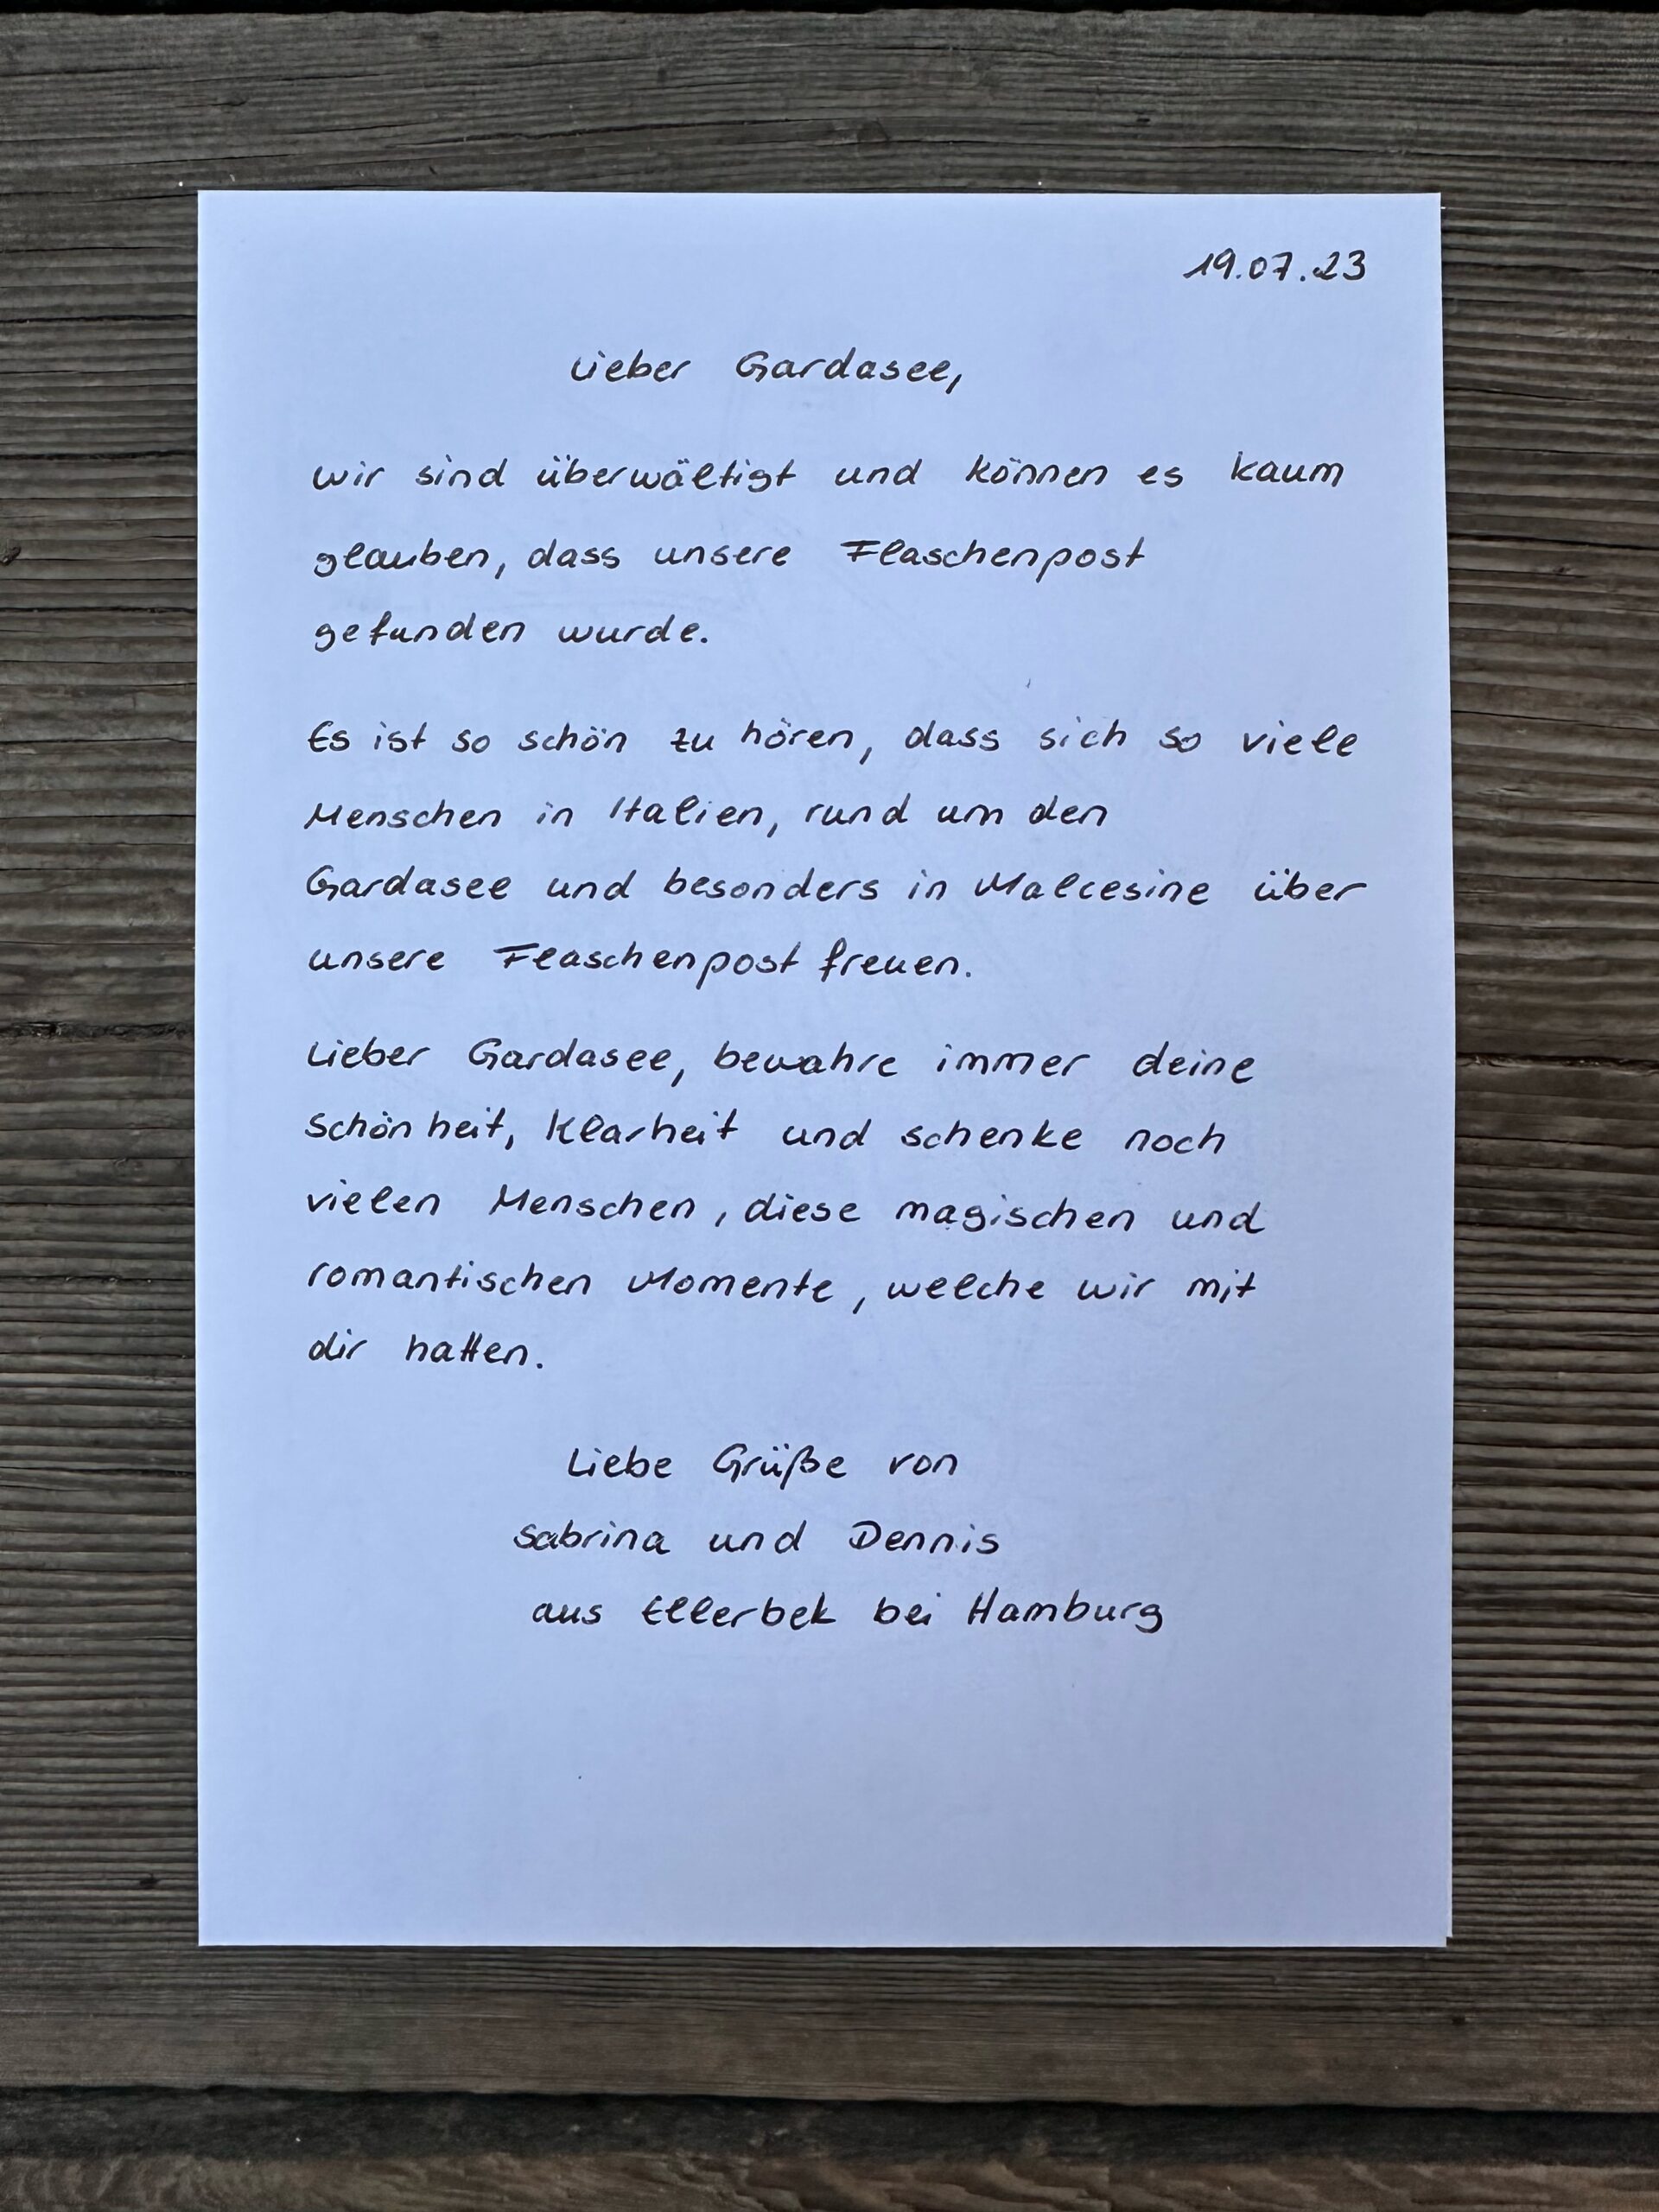 19.07.23
Lieber Gardasee,
wir sind überwältigt und können es kaum
glauben, dass unsere Flaschenpost
gefunden wurde.
Es ist so schön zu hören, dass sich so viele
Menschen in Italien, rund um den
Gardasee und besonders in Malcesine über
unsere Flaschenpost freuen.
Lieber Gardasee, bewahre immer deine
Schönheit, Klarheit und schenke noch
vielen Menschen, diese magischen und
romantischen Momente, welche wir mit
dir hatten.
Liebe Grüße von
Sabrina und Dennis
aus Ellerbek bei Hamburg